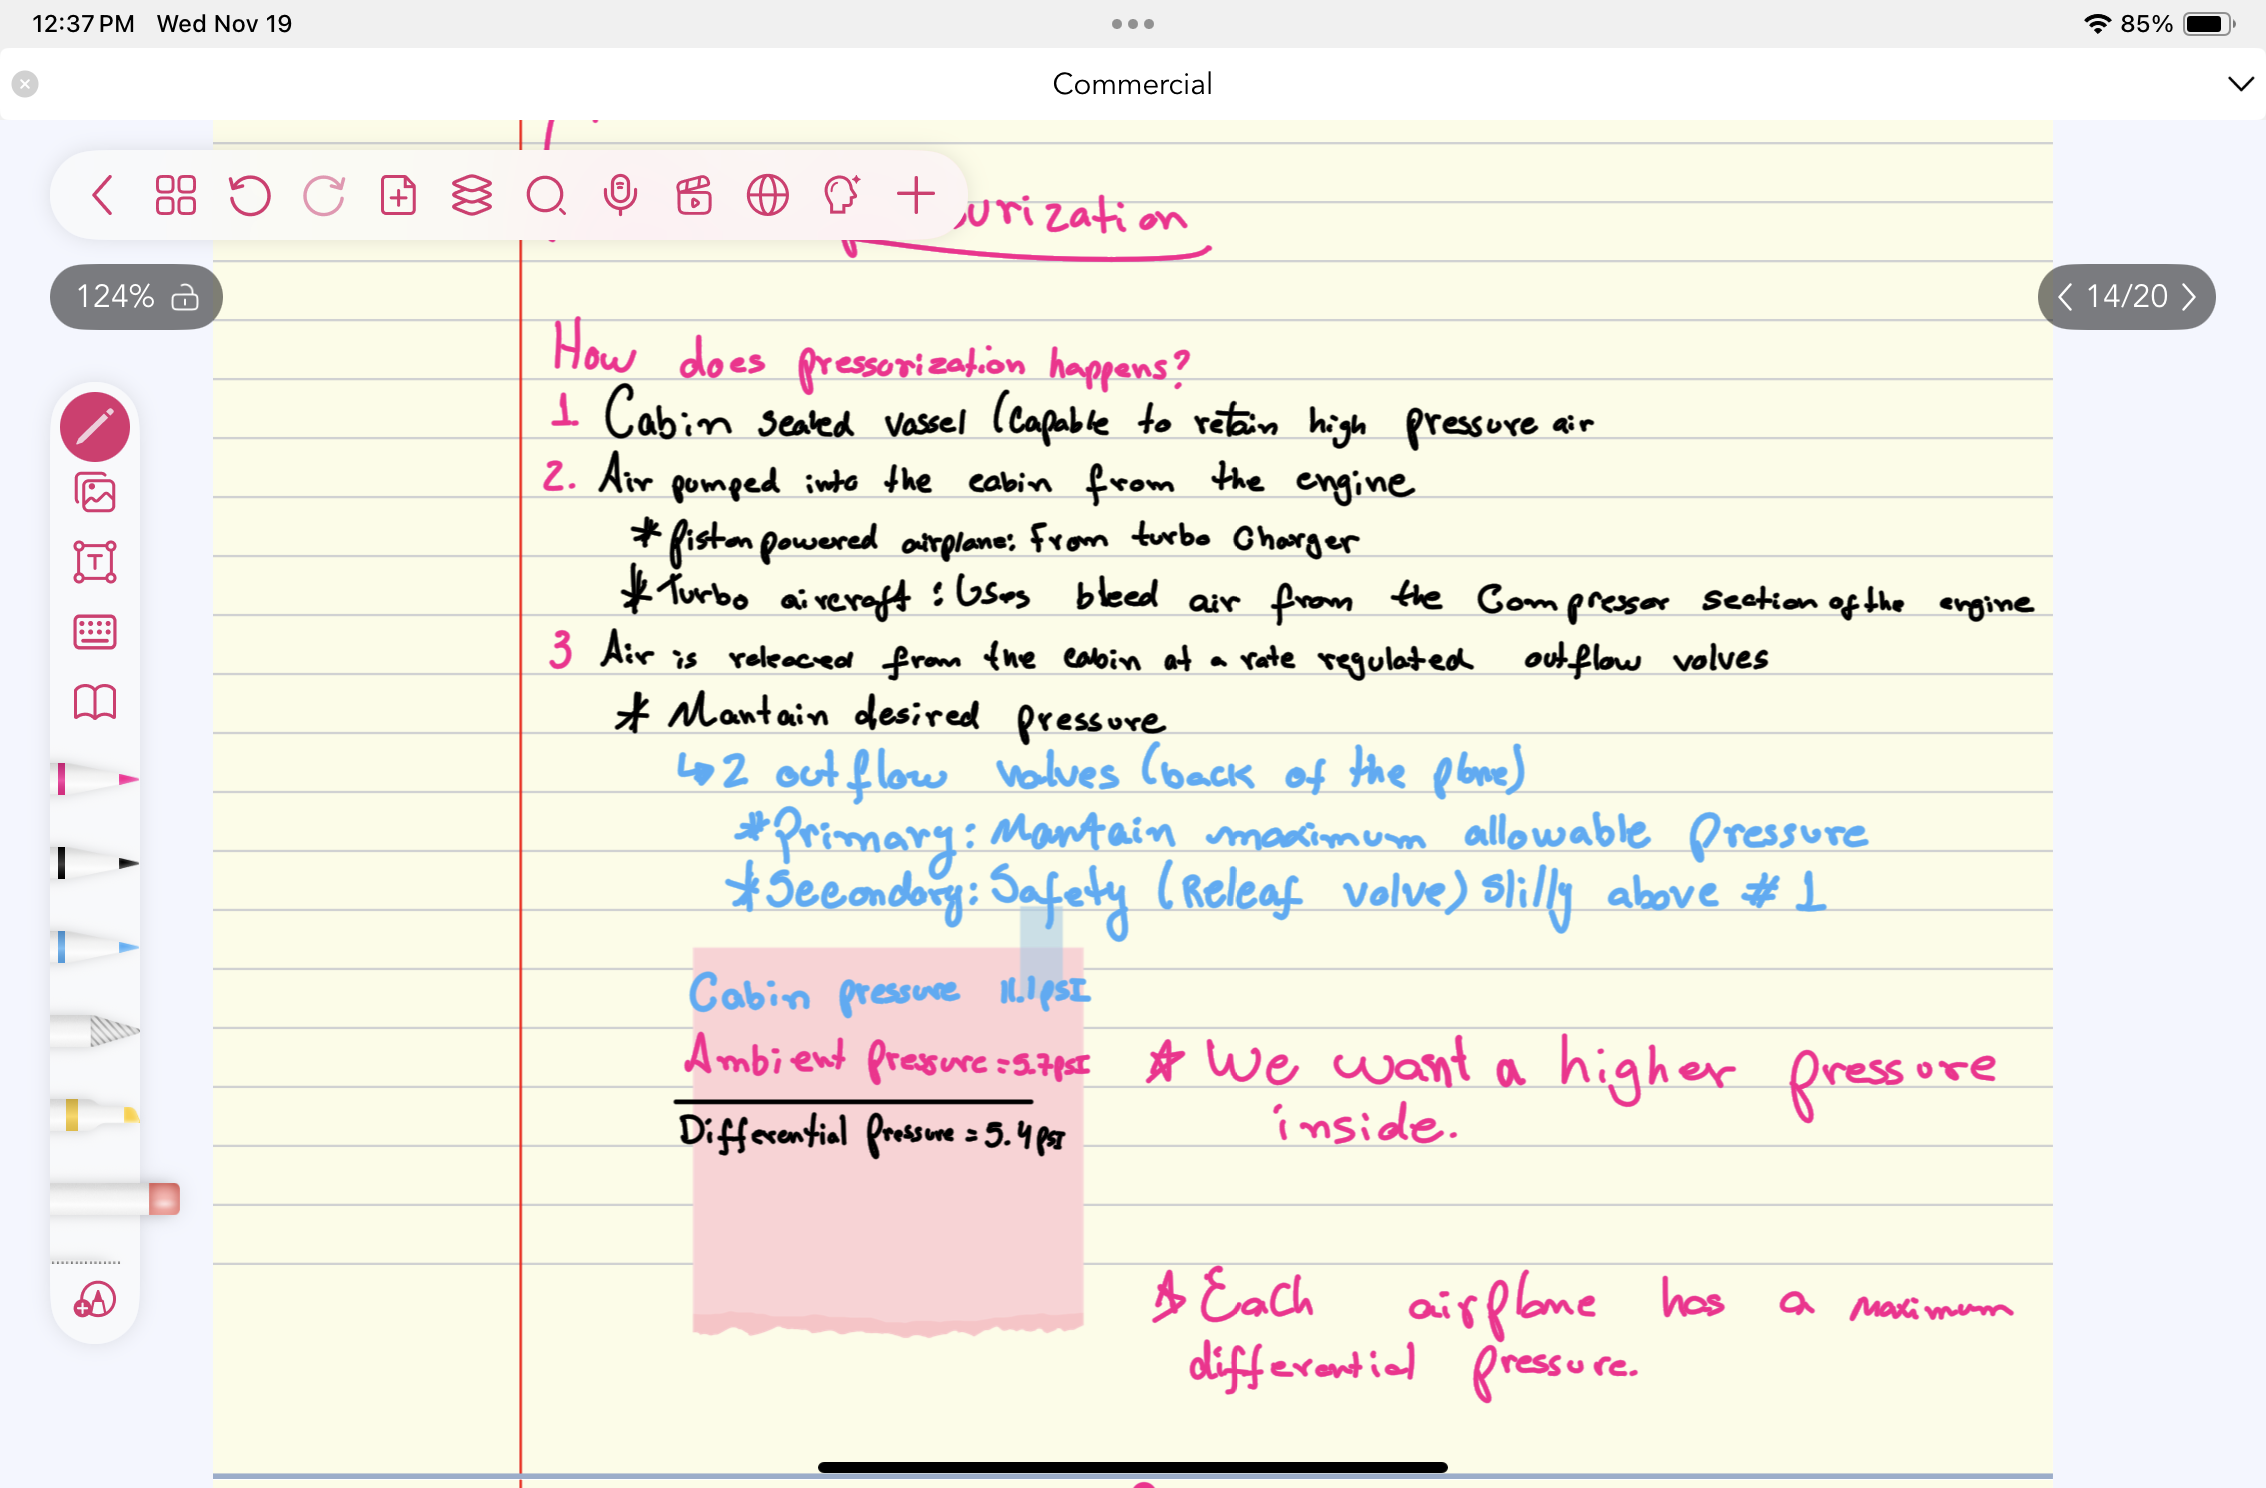 12:37 PM Wed Nov 19
85%
Commercial
urization
124%
14/20
How does pressurization happens?
1. Cabin sealed vassel (Capable to retain high pressure air
2. Air pumped into the cabin from the engine
* Piston powered airplane: From turbo Charger
* Turbo aircraft : Uses bleed air from the Compressor section of the engine
3 Air is releaced from the cabin at a rate regulated outflow valves
* Mantain desired pressure
↳ 2 outflow valves (back of the plane)
* Primary: Mantain maximum allowable Pressure
* Secondary: Safety (Releaf valve) slilly above # 1
Cabin pressure 11.1 PSI
Ambient Pressure = 5.7 PSI
Differential Pressure = 5.4 PSI
☆ We want a higher pressure
inside.
☆ Each airplane has a maximum
differential pressure.